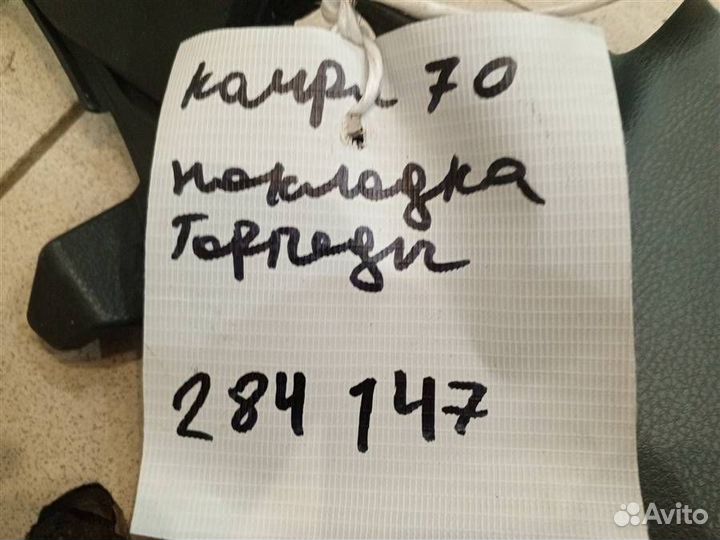 камри 70
накладка
торпеды
284 147
Avito